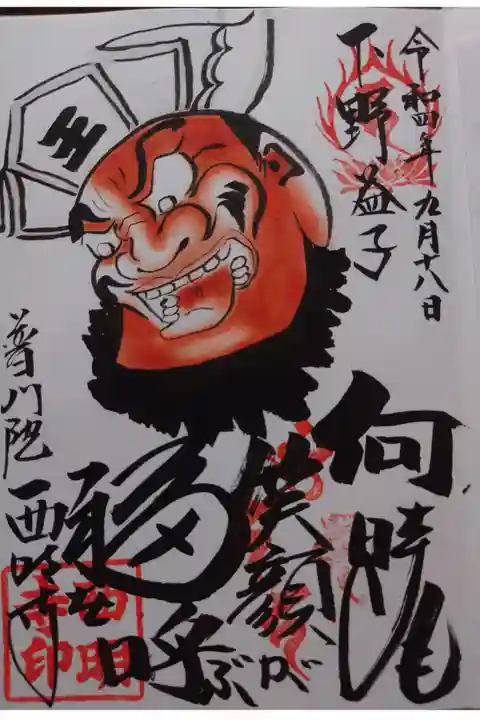 令和四年九月十八日
下野益子
王
何時も
笑顔が
福呼ぶ
普門院
西明寺
西明
寺印